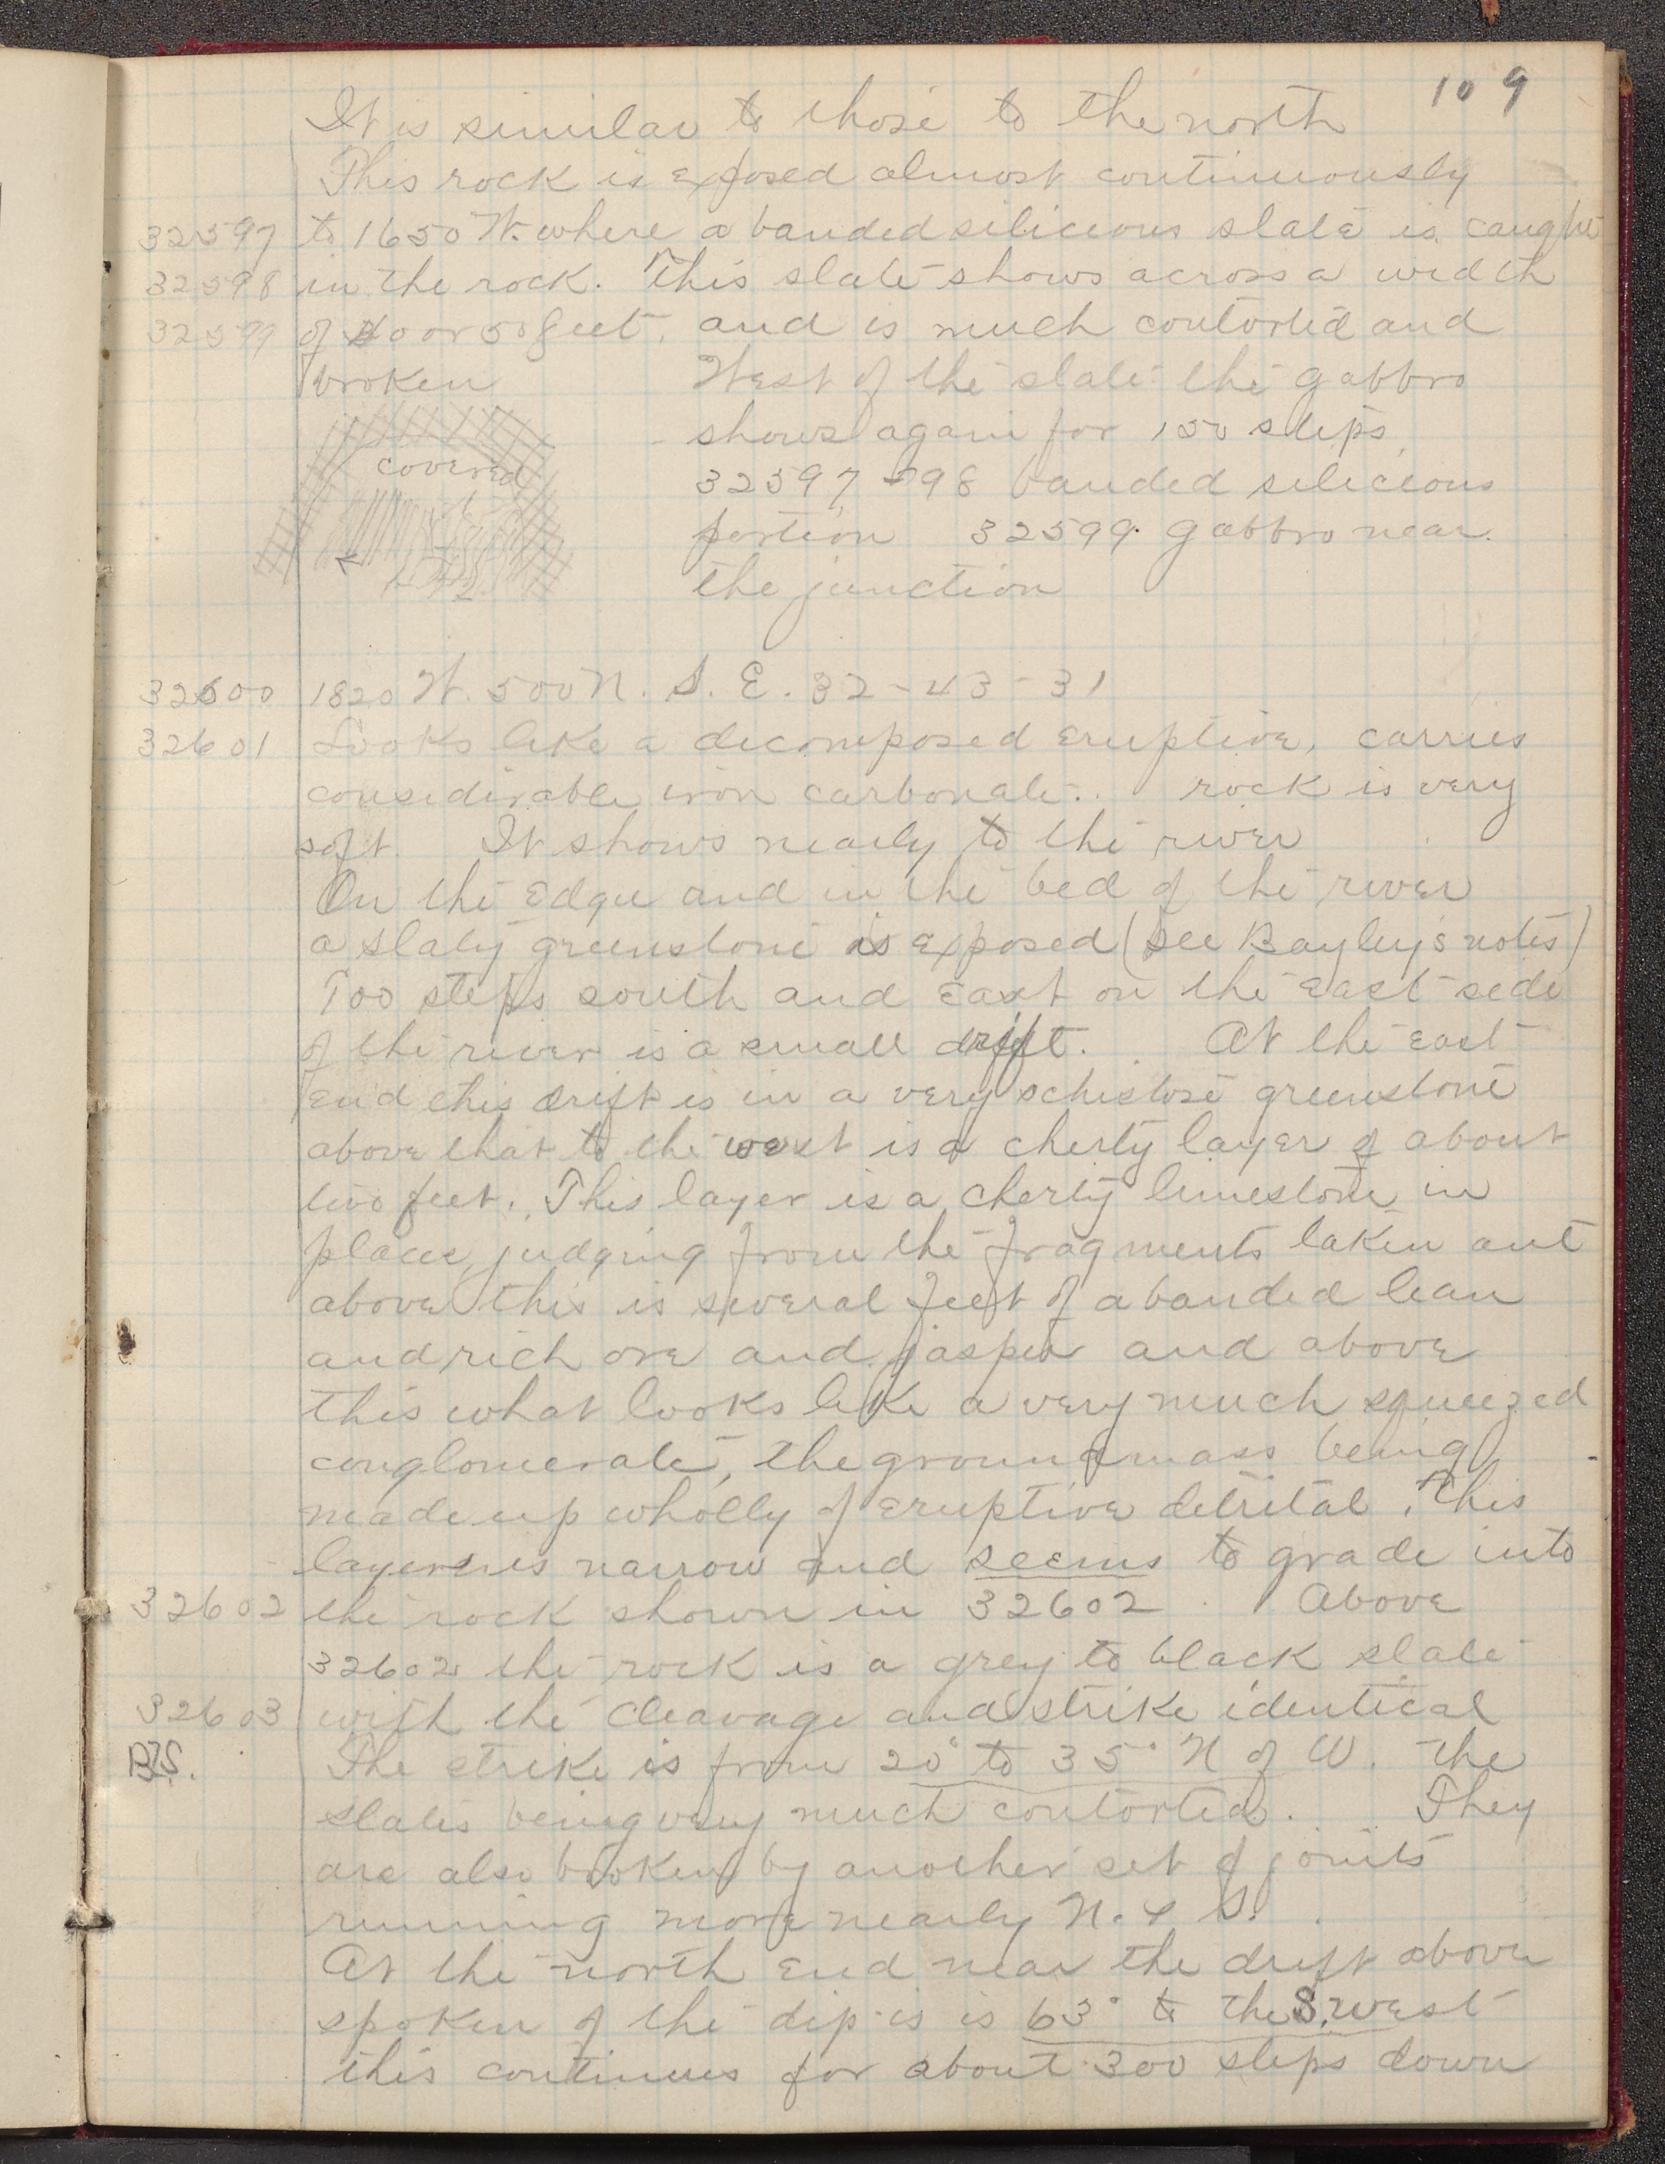 109
It is similar to those to the north
This rock is exposed almost continuously
32597 to 1650 W. where a banded silicious slate is caught
32598 in the rock. This slate shows across a width
32599 of 40 or 50 feet, and is much contorted and
broken
West of the slate the gabbro
shows again for 150 steps
covered
32597-98 banded silicious
portion 32599 gabbro near
the junction
32600 1820 W. 500 N. S.E. 32-43-31
32601 Looks like a decomposed eruptive, carries
considerable iron carbonate. rock is very
soft. It shows nearly to the river
On the edge and in the bed of the river
a slaty greenstone is exposed (see Bayley's notes)
700 steps south and east on the east side
of the river is a small drift. At the east
end this drift is in a very schistose greenstone
above that to the west is a cherty layer of about
two feet. This layer is a cherty limestone in
place, judging from the fragments taken out
above this is several feet of a banded lean
and rich ore and jasper and above
this what looks like a very much squeezed
conglomerate, the groundmass being
made up wholly of eruptive detrital. This
layer is narrow and seems to grade into
32602 the rock shown in 32602. Above
32602 the rock is a grey to black slate
32603 with the cleavage and strike identical
B.S. The strike is from 20° to 35° N of W. the
slates being very much contorted. They
are also broken by another set of joints
running more nearly N. & S.
At the north end near the drift above
spoken of the dip is is 63° to the S.west
this continues for about 300 steps down